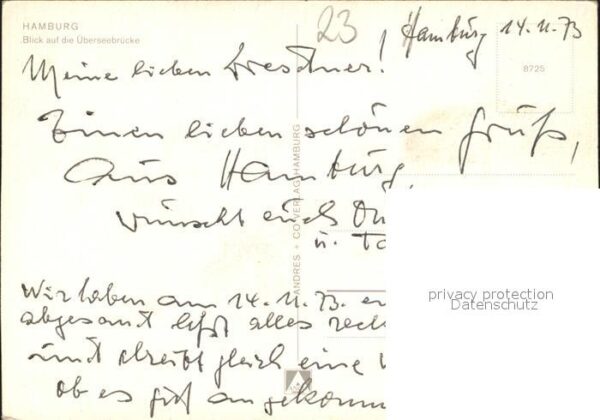 HAMBURG
Blick auf die Überseebrücke
23
Hamburg 14.11.73
8725
Meine lieben Dresdner!
Einen lieben schönen Gruß,
aus Hamburg,
wünscht euch
u.
Wir haben am 14.11.73.
abgesamt laßt alles
und schreibt gleich eine
ob es gut angekomm
ANDRES + CO VERLAG HAMBURG
privacy protection
Datenschutz